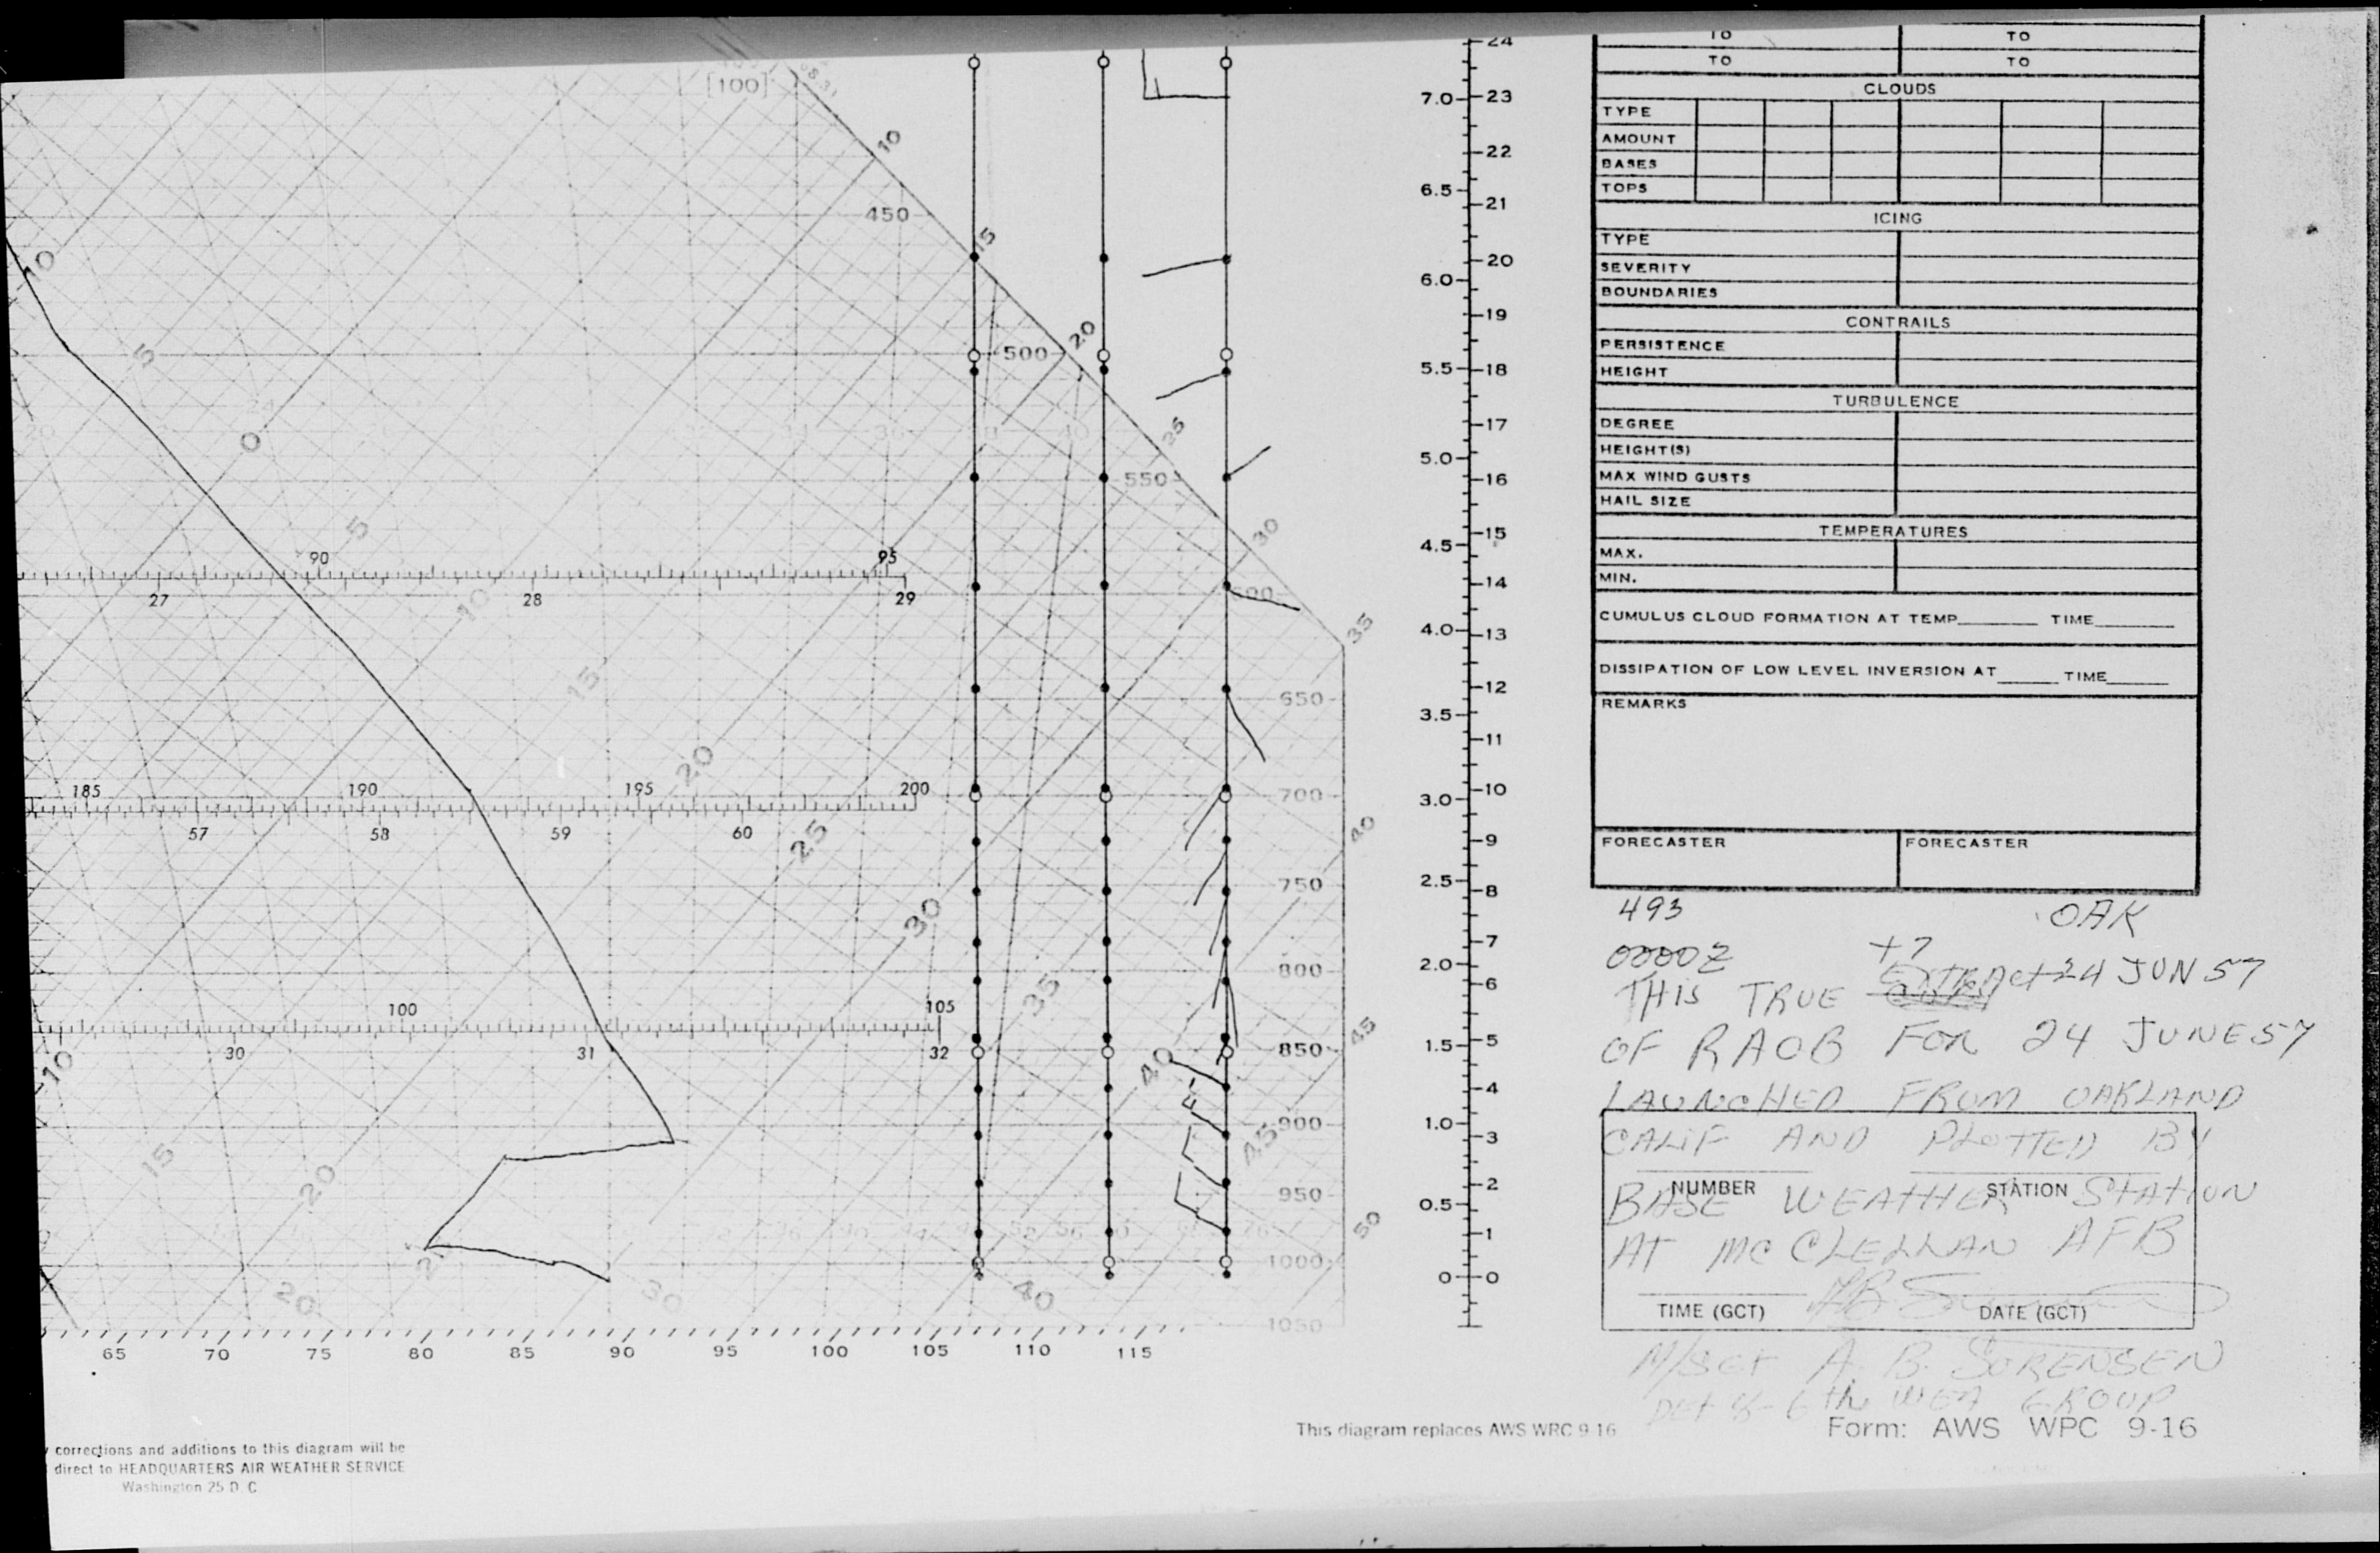 TO TO
TO TO
CLOUDS
TYPE
AMOUNT
BASES
TOPS
ICING
TYPE
SEVERITY
BOUNDARIES
CONTRAILS
PERSISTENCE
HEIGHT
TURBULENCE
DEGREE
HEIGHT(S)
MAX WIND GUSTS
HAIL SIZE
TEMPERATURES
MAX.
MIN.
CUMULUS CLOUD FORMATION AT TEMP TIME
DISSIPATION OF LOW LEVEL INVERSION AT TIME
REMARKS
FORECASTER FORECASTER
493 OAK
0000Z +7 24 JUN 57
THIS TRUE Extract
OF RAOB FOR 24 JUNE 57
LAUNCHED FROM OAKLAND
CALIF AND PLOTTED BY
NUMBER STATION
BASE WEATHER STATION
AT MC CLELLAN AFB
TIME (GCT) DATE (GCT)
M/SGT A. B. SORENSEN
6th WEA GROUP
This diagram replaces AWS WRC 9-16
Form: AWS WPC 9-16
corrections and additions to this diagram will be
direct to HEADQUARTERS AIR WEATHER SERVICE
Washington 25 D C
[100]
10
450
15
500
20
25
550
30
600
35
650
700
40
750
800
45
850
900
950
50
1000
1050
10
5
0
5
10
15
20
25
30
35
40
45
10
15
20
20
30
40
90 95
27 28 29
185 190 195 200
57 58 59 60
100 105
30 31 32
65 70 75 80 85 90 95 100 105 110 115
24
7.0 23
22
6.5
21
20
6.0
19
5.5 18
17
5.0
16
15
4.5
14
4.0
13
12
3.5
11
3.0 10
9
2.5
8
7
2.0
6
1.5 5
4
1.0
3
2
0.5
1
0 0